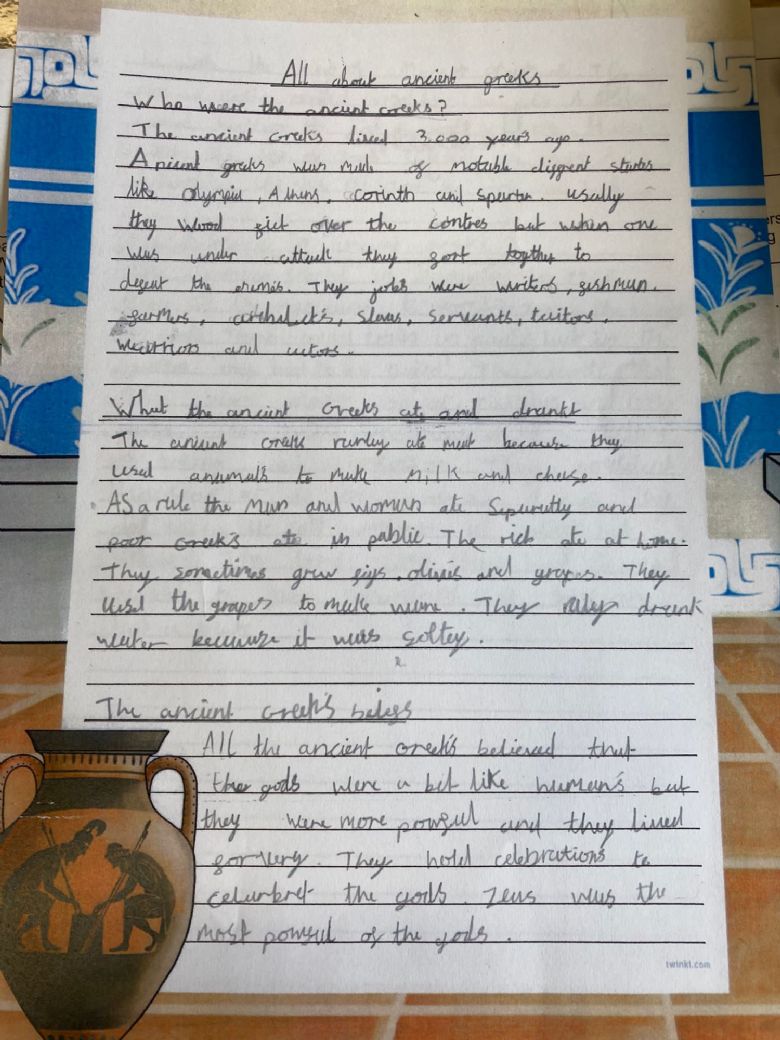 All about ancient greeks
Who were the ancient Greeks?
The ancient Greeks lived 3,000 years ago.
greeks was made of notable diffrent states
like Olympia, Athens, Corinth and Sparta. usally
they wood fiet over the contres but when one
was under attack they gort together to
defeat the enemis. They jobs were writers, fishman.
farmers, slaves, servants, tuitors,
warriors and actors.
What the ancient Greeks ate and drankt
The anciant Greeks rarley ate meat because they
used anamals to make milk and chease.
AS a rule the man and woman ate Sepuretly and
poor Greek's ate in public. The rich ate at home.
They sometimes grew figs, olives and grapes. They
used the grapes to make wine. They raley drank
water because it was soltey.
The ancient Greek's belefs
All the ancient Greek's believed that
the gods were a bit like human's but
they were more powful and they lived
forvery. They hold celebrations to
celurbret the gods. Zeus was the
most powful of the gods.
twinkl.com